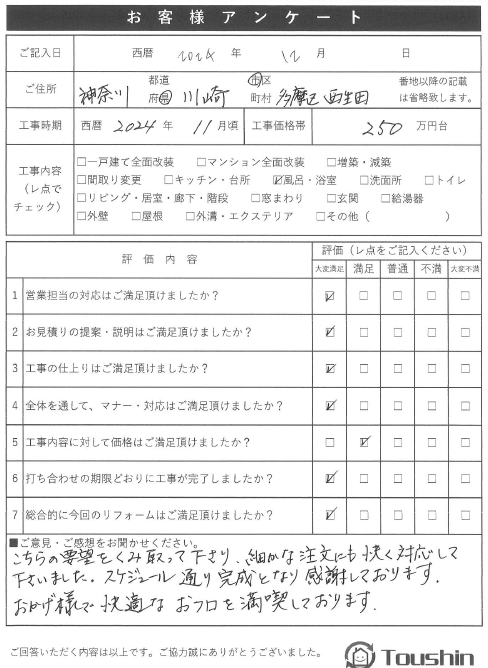 お客様アンケート
ご記入日 西暦 2024 年 12 月 日
ご住所 神奈川 都道府県 川崎 市区町村 多摩区 西生田 番地以降の記載は省略致します。
工事時期 西暦 2024 年 11 月頃 工事価格帯 250 万円台
工事内容（レ点でチェック）
□一戸建て全面改装 □マンション全面改装 □増築・減築
□間取り変更 □キッチン・台所 ☑風呂・浴室 □洗面所 □トイレ
□リビング・居室・廊下・階段 □窓まわり □玄関 □給湯器
□外壁 □屋根 □外溝・エクステリア □その他（ ）
評価内容 評価（レ点をご記入ください）
大変満足 満足 普通 不満 大変不満
1 営業担当の対応はご満足頂けましたか？ ☑ □ □ □ □
2 お見積りの提案・説明はご満足頂けましたか？ ☑ □ □ □ □
3 工事の仕上りはご満足頂けましたか？ ☑ □ □ □ □
4 全体を通して、マナー・対応はご満足頂けましたか？ ☑ □ □ □ □
5 工事内容に対して価格はご満足頂けましたか？ □ ☑ □ □ □
6 打ち合わせの期限どおりに工事が完了しましたか？ ☑ □ □ □ □
7 総合的に今回のリフォームはご満足頂けましたか？ ☑ □ □ □ □
■ご意見・ご感想をお聞かせください。
こちらの要望をくみ取って下さり、細かな注文にも快く対応して
下さいました。スケジュール通り完成となり感謝しております。
おかげ様で快適なおフロを満喫しております。
ご回答いただく内容は以上です。ご協力誠にありがとうございました。
Toushin